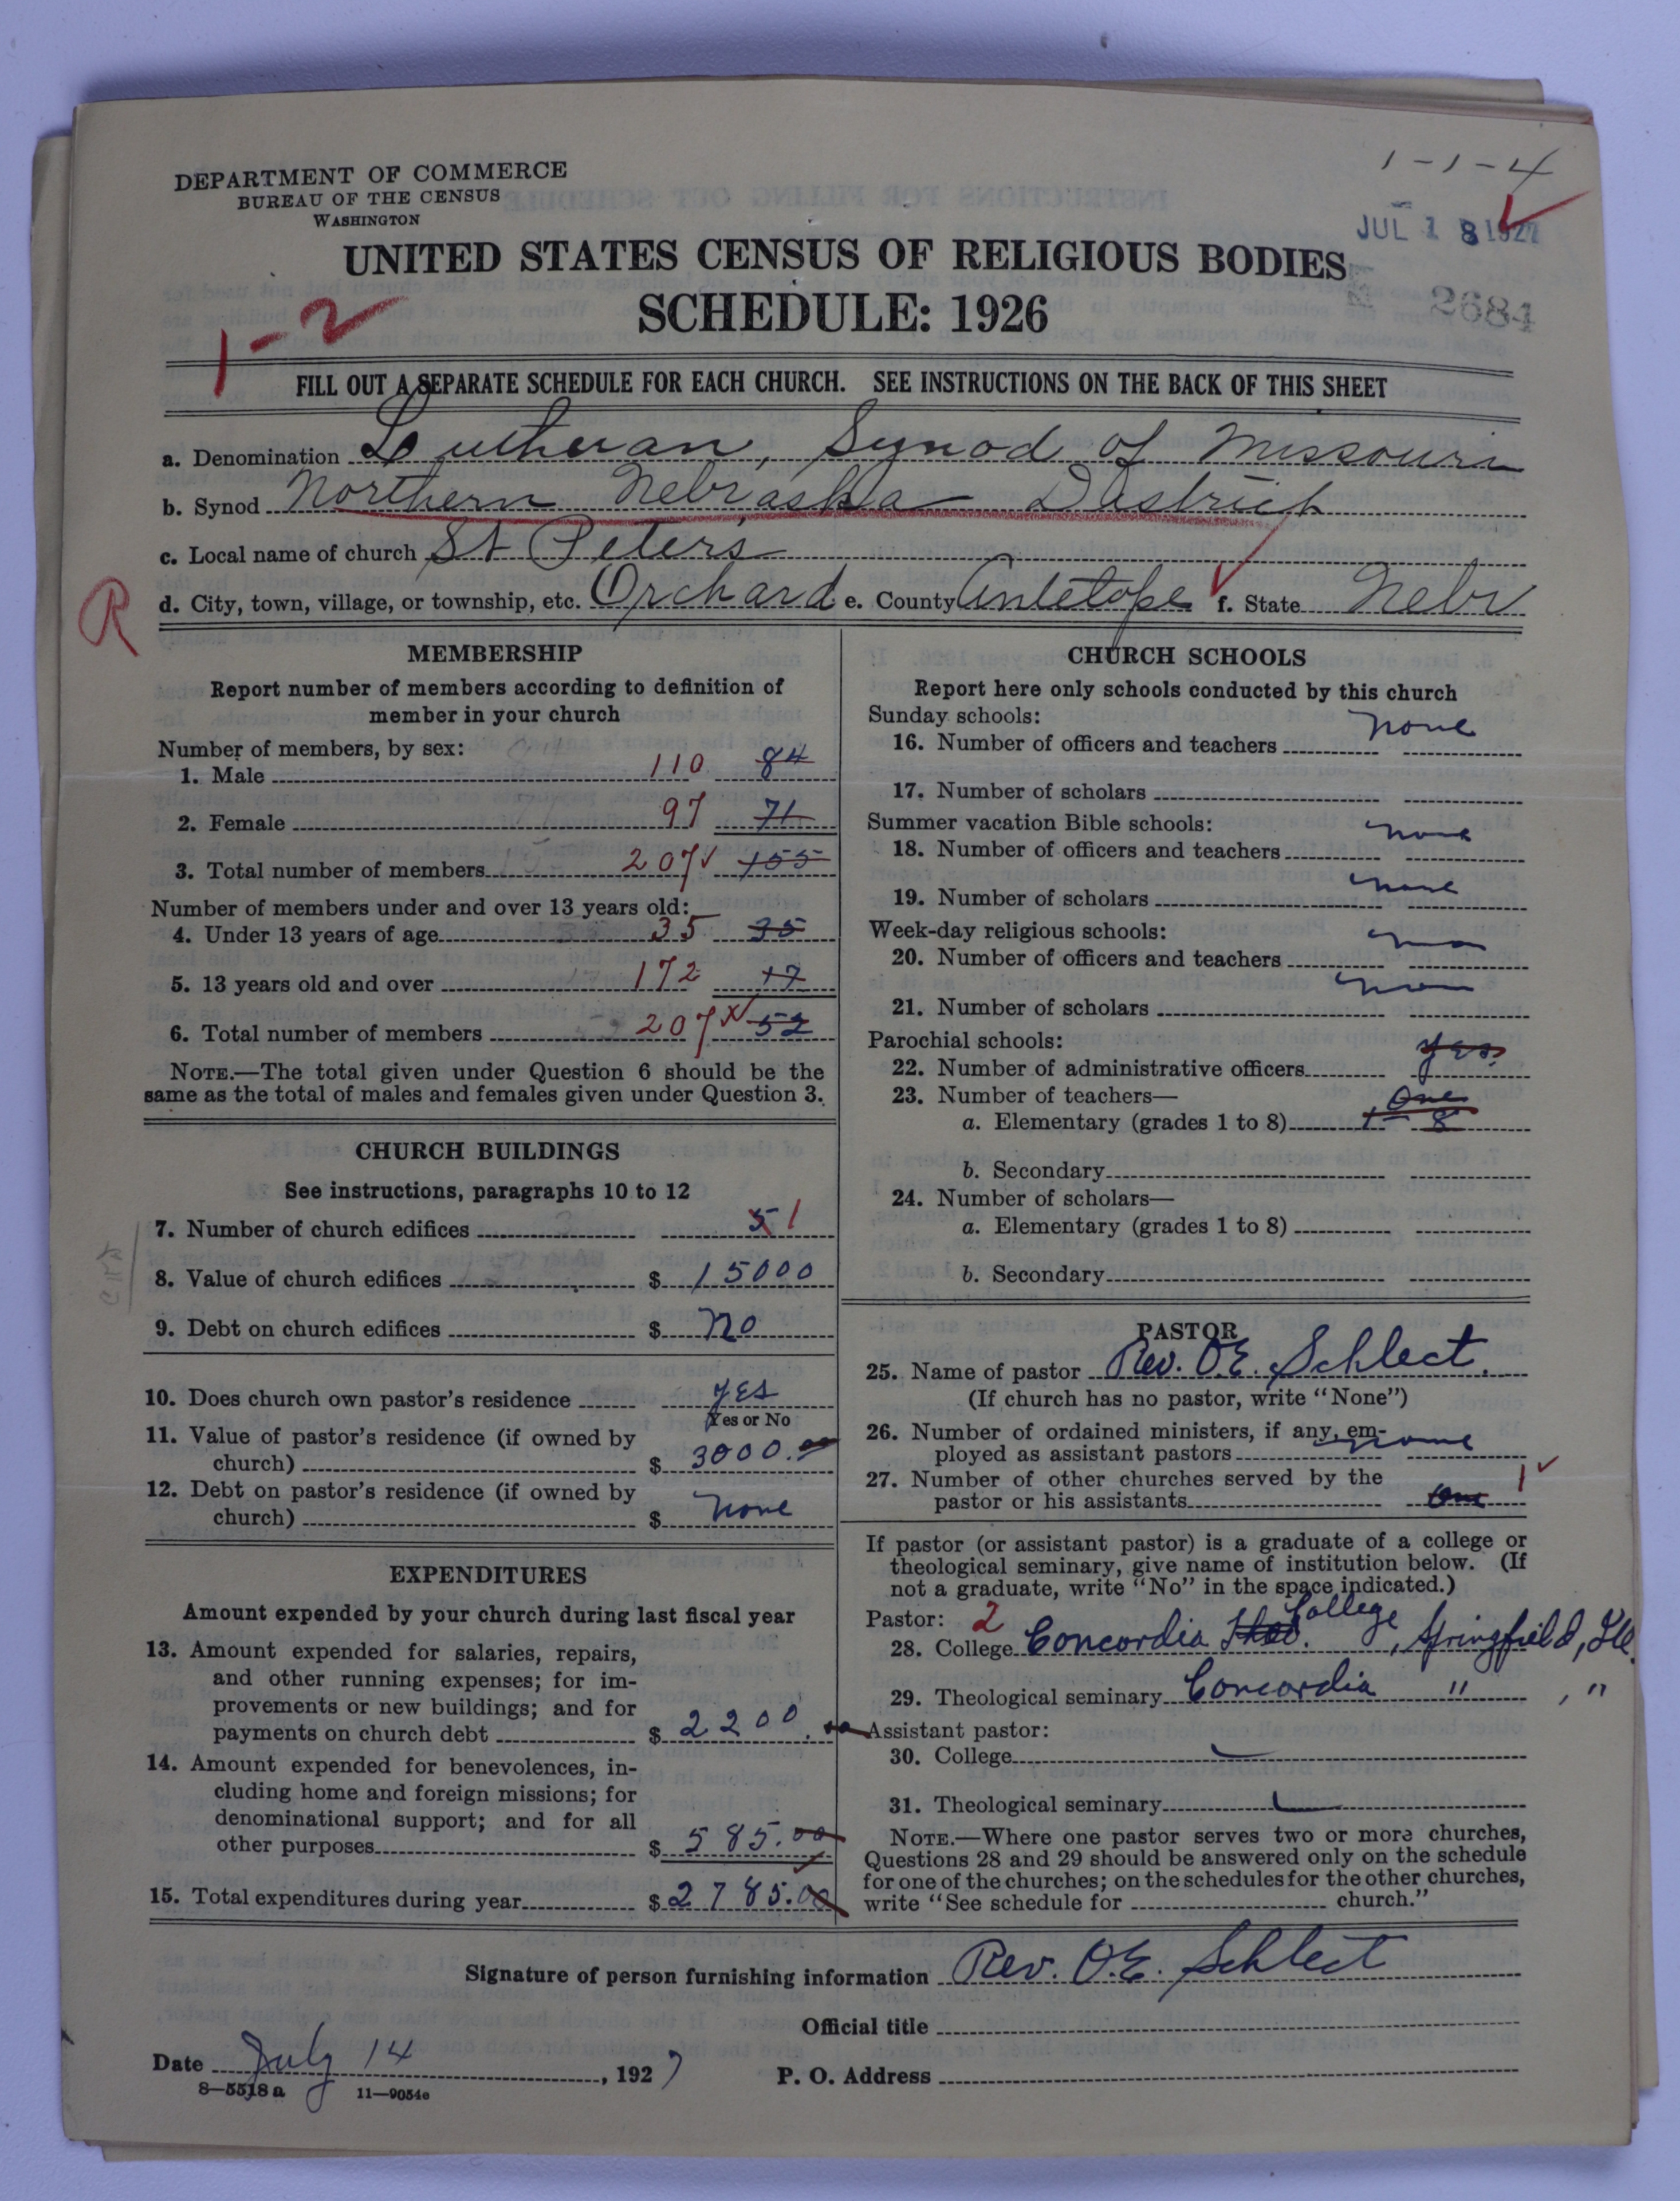 1-1-4
DEPARTMENT OF COMMERCE
BUREAU OF THE CENSUS
WASHINGTON
JUL 18 1927
UNITED STATES CENSUS OF RELIGIOUS BODIES
SCHEDULE: 1926
2684
1-2
FILL OUT A SEPARATE SCHEDULE FOR EACH CHURCH. SEE INSTRUCTIONS ON THE BACK OF THIS SHEET
a. Denomination Lutheran, Synod of Missouri
b. Synod Northern Nebraska District
c. Local name of church St Peters
R
d. City, town, village, or township, etc. Orchard e. County Antelope f. State Nebr
MEMBERSHIP
Report number of members according to definition of
member in your church
Number of members, by sex:
1. Male 110 84
2. Female 97 71
3. Total number of members 207 155
Number of members under and over 13 years old:
4. Under 13 years of age 35 35
5. 13 years old and over 172 17
6. Total number of members 207 52
NOTE.—The total given under Question 6 should be the
same as the total of males and females given under Question 3.
CHURCH BUILDINGS
See instructions, paragraphs 10 to 12
7. Number of church edifices 5 1
8. Value of church edifices $ 15000
9. Debt on church edifices $ no
10. Does church own pastor's residence yes
Yes or No
11. Value of pastor's residence (if owned by
church) $ 3000.00
12. Debt on pastor's residence (if owned by
church) $ none
EXPENDITURES
Amount expended by your church during last fiscal year
13. Amount expended for salaries, repairs,
and other running expenses; for im-
provements or new buildings; and for
payments on church debt $ 2200.00
14. Amount expended for benevolences, in-
cluding home and foreign missions; for
denominational support; and for all
other purposes $ 585.00
15. Total expenditures during year $ 2785.00
CHURCH SCHOOLS
Report here only schools conducted by this church
Sunday schools:
16. Number of officers and teachers none
17. Number of scholars
Summer vacation Bible schools:
18. Number of officers and teachers none
19. Number of scholars none
Week-day religious schools:
20. Number of officers and teachers
21. Number of scholars
Parochial schools:
22. Number of administrative officers yes.
23. Number of teachers— One
a. Elementary (grades 1 to 8) 1 - 8
b. Secondary
24. Number of scholars—
a. Elementary (grades 1 to 8)
b. Secondary
PASTOR
25. Name of pastor Rev. O.E. Schlect.
(If church has no pastor, write "None")
26. Number of ordained ministers, if any, em-
ployed as assistant pastors none
27. Number of other churches served by the
pastor or his assistants One 1
If pastor (or assistant pastor) is a graduate of a college or
theological seminary, give name of institution below. (If
not a graduate, write "No" in the space indicated.)
Pastor: 2
28. College Concordia College, Springfield, Ill.
29. Theological seminary Concordia " , "
Assistant pastor:
30. College
31. Theological seminary
NOTE.—Where one pastor serves two or more churches,
Questions 28 and 29 should be answered only on the schedule
for one of the churches; on the schedules for the other churches,
write "See schedule for church."
Signature of person furnishing information Rev. O.E. Schlect
Official title
Date July 14, 1927 P. O. Address
8—5518 a 11—9054c